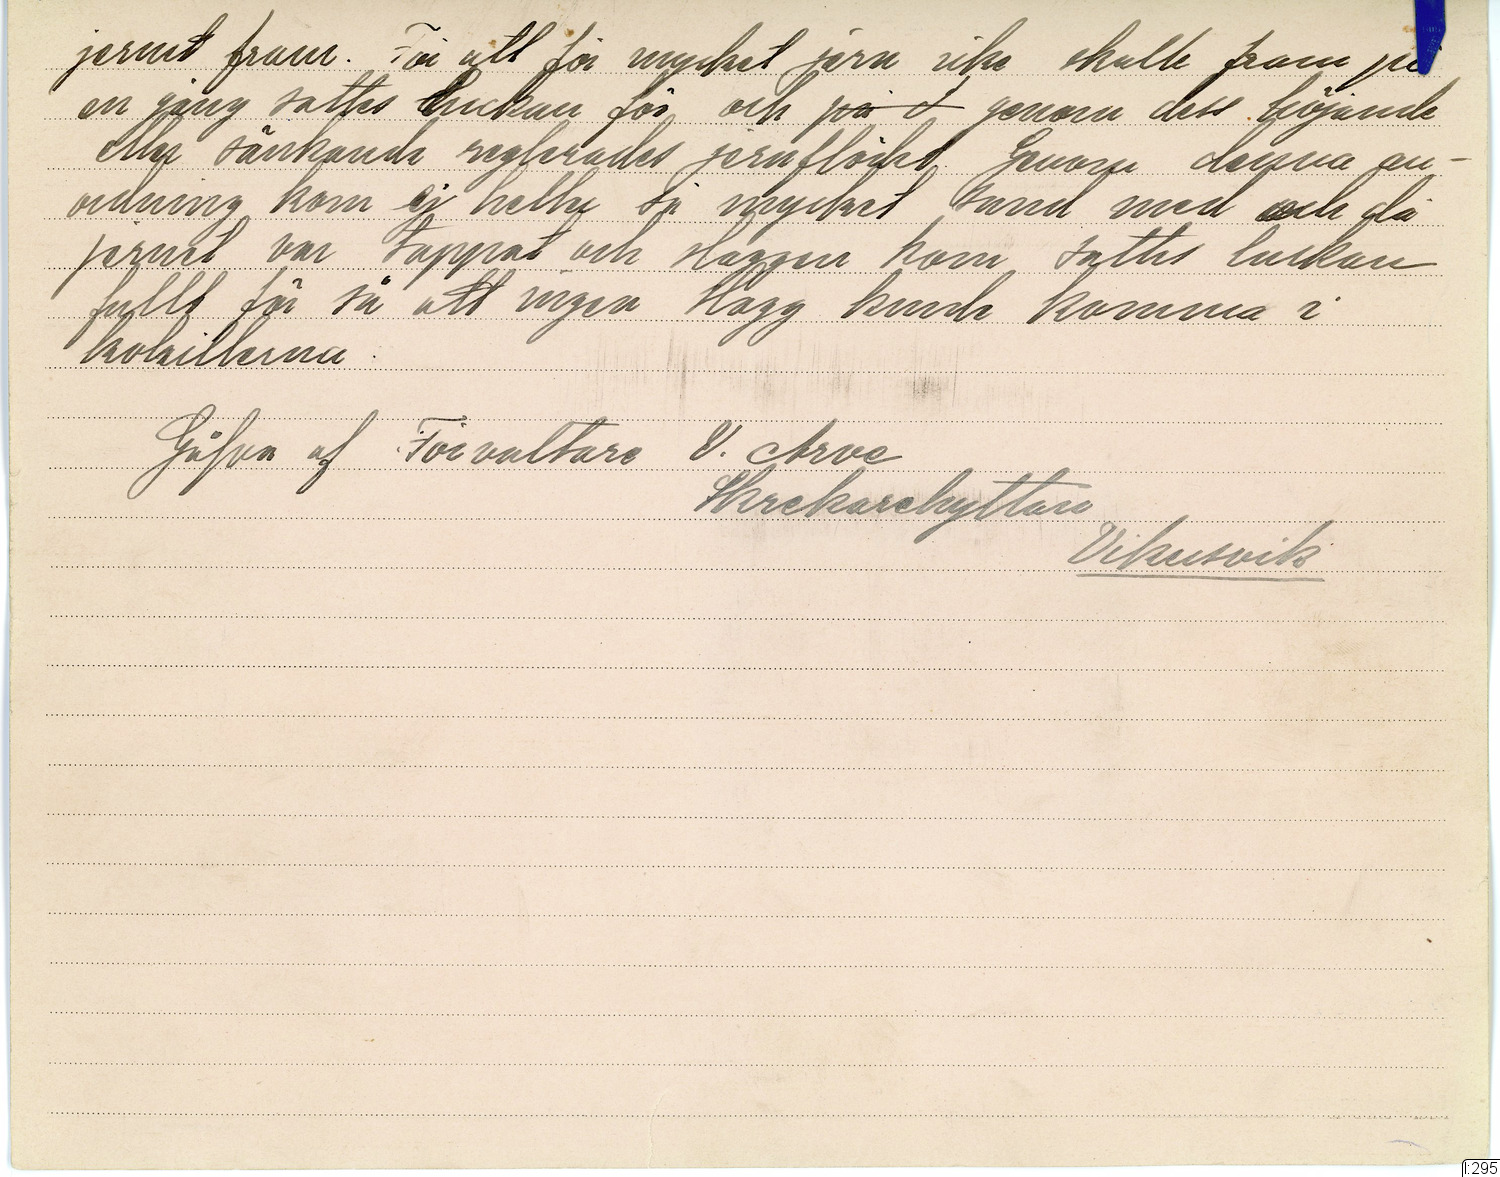 jernet fram. För att för mycket järn icke skulle fram på
en gång sattes luckan för och på d genom dess höjande
eller sänkande reglerades jernflödet. Genom denna an-
ordning kom ej heller så mycket sand med och då
jernet var tappat och slaggen kom sattes luckan
fullt för så att ingen slagg kunde komma i
kokillerna.
Gåfva af Förvaltare V. Arve
Skrekarehyttan
Vikersvik
I:295